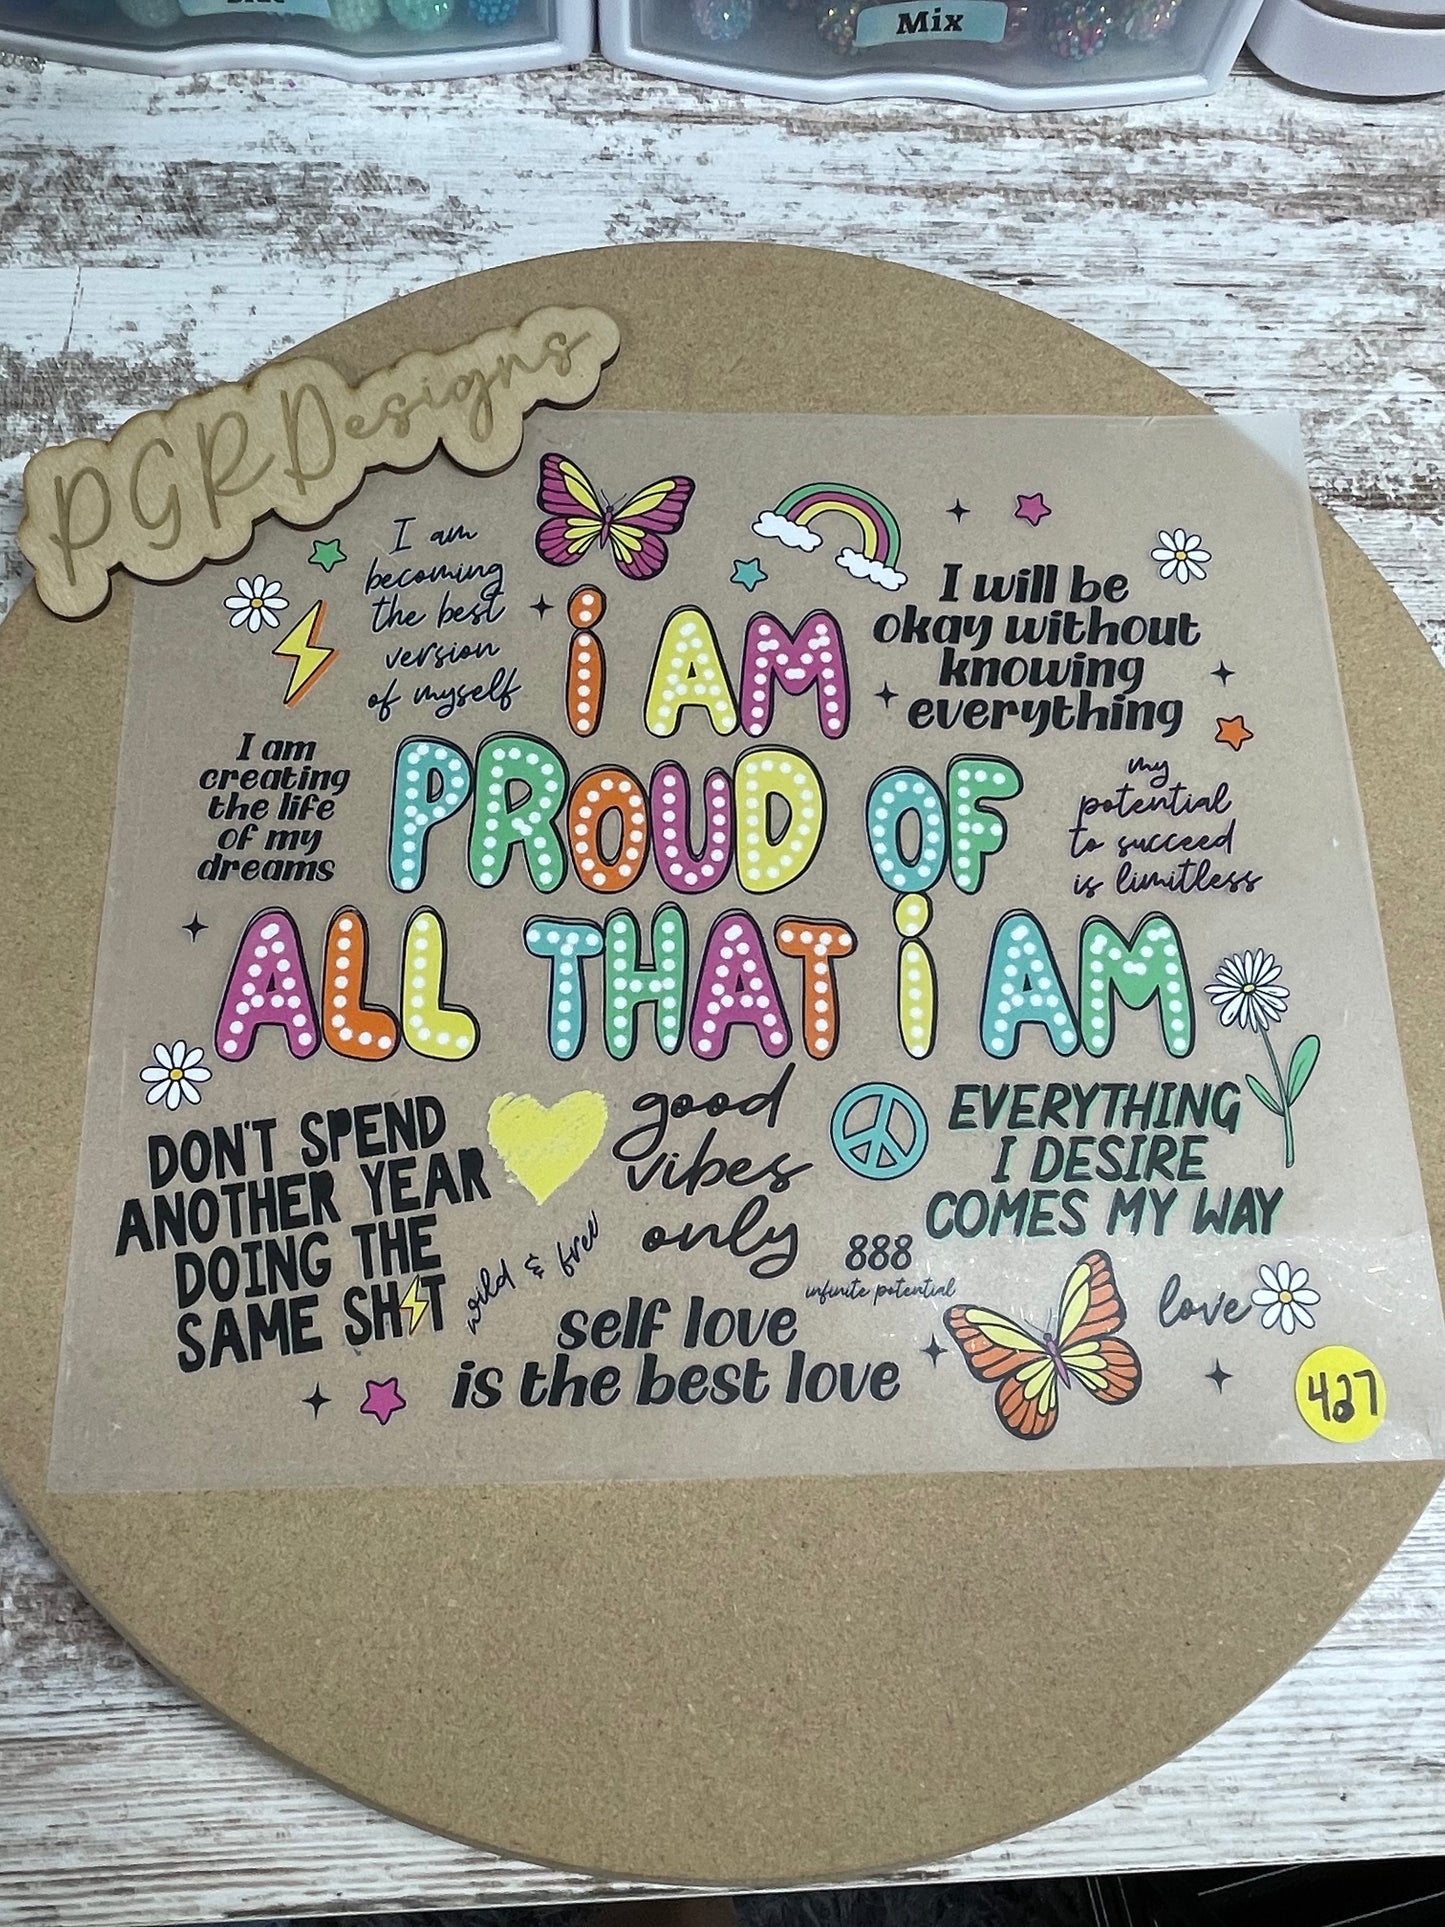 Mix
PGRDesigns
I am
becoming
the best
version
of myself
I will be
okay without
knowing
everything
i AM
PROUD OF
ALL THAT i AM
I am
creating
the life
of my
dreams
my
potential
to succeed
is limitless
DON'T SPEND
ANOTHER YEAR
DOING THE
SAME SH⚡T
good
vibes
only
EVERYTHING
I DESIRE
COMES MY WAY
wild & free
888
infinite potential
self love
is the best love
love
427